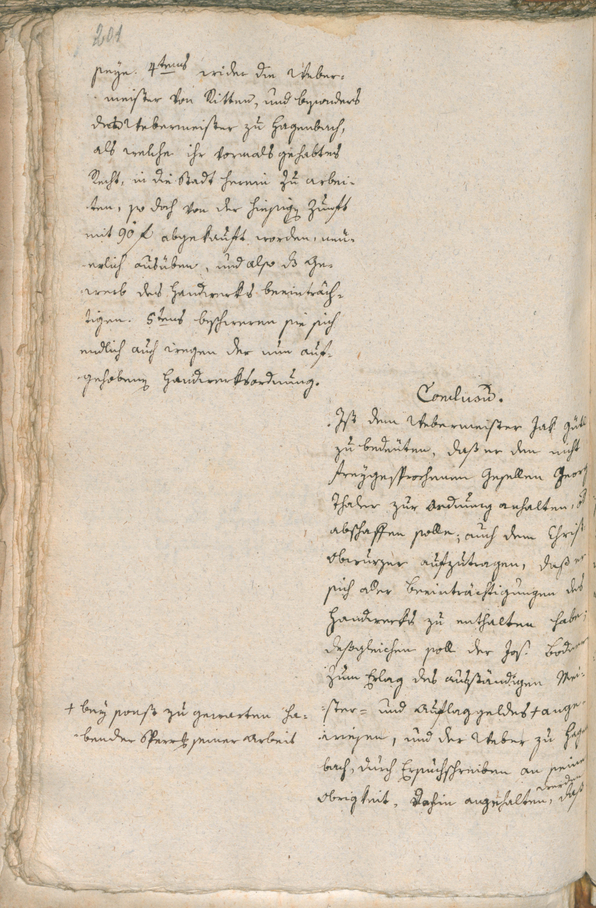 201
seye. 4tens wider die Weber-
meister von Ritten, und besonders
den Webermeister zu Hagenbach,
als welche ihr vormals gehabtes
Recht, in die Stadt herein zu arbei-
ten, so doch von der hiesigen Zunft
mit 90 f abgekauft worden, neu-
erlich ausüben, und also das Ge-
werb des Handwerks beeinträch-
tigen. 5tens beschweren sie sich
endlich auch wegen der nun auf-
gehobenen Handwerksordnung.
Conclusum.
Ist dem Webermeister Jak.
zu bedeuten, daß er den nicht
freygesprochenen Gesellen Georg
Thaler zur Ordnung anhalten,
abschaffen solle; auch dem Christ
Obwurzer aufzutragen, daß er
sich aller Beeinträchtigungen des
Handwerks zu enthalten habe;
desgleichen soll der Jos.
zum Erlag des ausständigen Mei-
ster- und Auflaggeldes + ange-
wiesen, und der Weber zu Hagen
bach, durch Ersuchschreiben an seine
Obrigkeit, dahin angehalten werden, daß
+ bey sonst zu gewarten ha-
bender Sperr seiner Arbeit